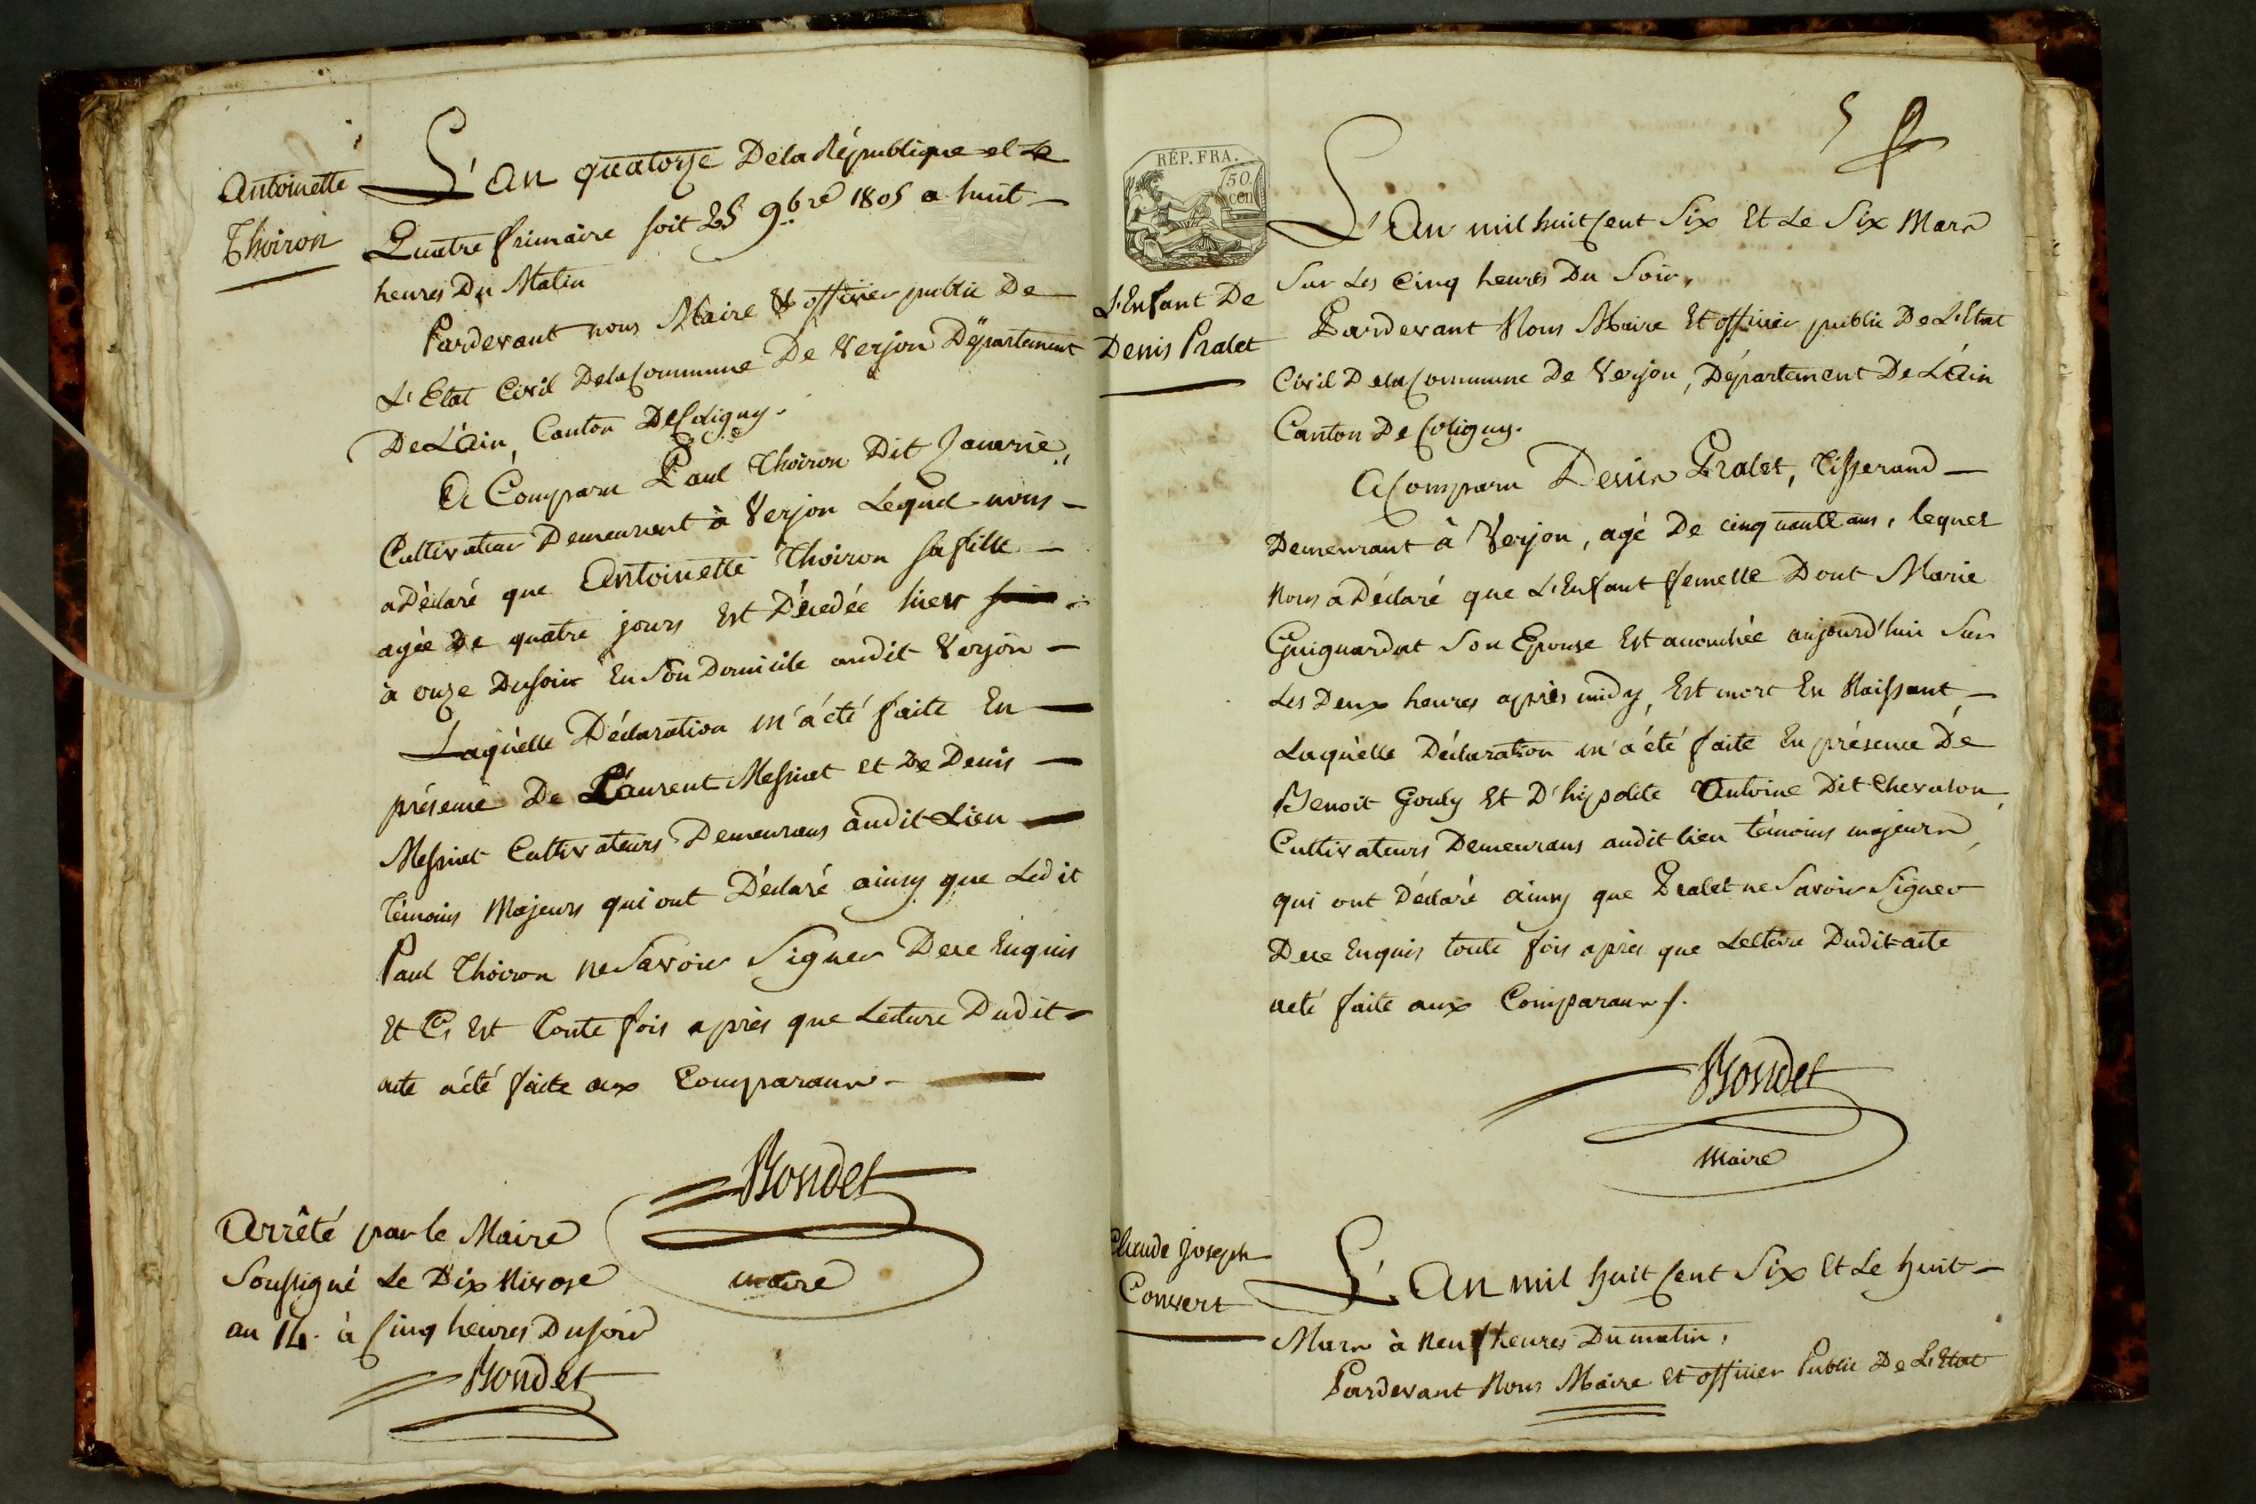 Antoinette
Thoiron
L'an quatorze De la République et le
Quatre frimaire soit 25 9bre 1805 a huit
heures Du Matin
Pardevant nous Maire & officier public De
L'Etat Civil De la Commune De Verjon Département
De L'Ain, Canton De Coligny.
A Comparu Paul Thoiron Dit
Cultivateur Demeurant à Verjon Lequel nous
a Déclaré que Antoinette Thoiron sa fille
agée De quatre jours Est Décedée hier
à onze Du soir En Son Domicile audit Verjon
Laquelle Déclaration m'a été faite En
présence De Laurent Messinet et De Denis
Messinet Cultivateurs Demeurans audit Lieu
Témoins Majeurs qui ont Déclaré ainsy que Ledit
Paul Thoiron ne Savoir Signer De ce Enquis
Et Ce Est Toute fois après que Lecture Dudit
acte a été faite aux Comparans.
Bondet
maire
Arrêté par le Maire
Soussigné Le Dix Nivose
an 14. à Cinq heures Du soir
Bondet
5
RÉP. FRA.
50.
cen
L'Enfant De
Denis Pralet
L'An mil huit Cent Six Et Le Six Mars
Sur Les Cinq heures Du Soir,
Pardevant Nous Maire Et officier public De L'Etat
Civil De la Commune De Verjon, Département De L'Ain
Canton De Coligny.
A Comparu Denis Pralet, Tisserand
Demeurant à Verjon, agé De cinquante ans, lequel
Nous a Déclaré que L'Enfant femelle Dont Marie
Guiguardat Son Epouse Est accouchée aujourd'hui Sur
Les Deux heures après midy, Est mort En Naissant,
Laquelle Déclaration m'a été faite En présence De
Benoit Gouly Et D'hipolite Antoine Dit Chevalon,
Cultivateurs Demeurans audit lieu témoins majeurs,
qui ont Déclaré ainsy que Pralet ne Savoir Signer
De ce Enquis toute fois après que Lecture Dudit acte
a eté faite aux Comparans.
Bondet
Maire
Claude Joseph
Convert
L'An mil huit Cent Six Et Le huit
Mars à Neuf heures Du matin,
Pardevant Nous Maire Et officier Public De L'Etat